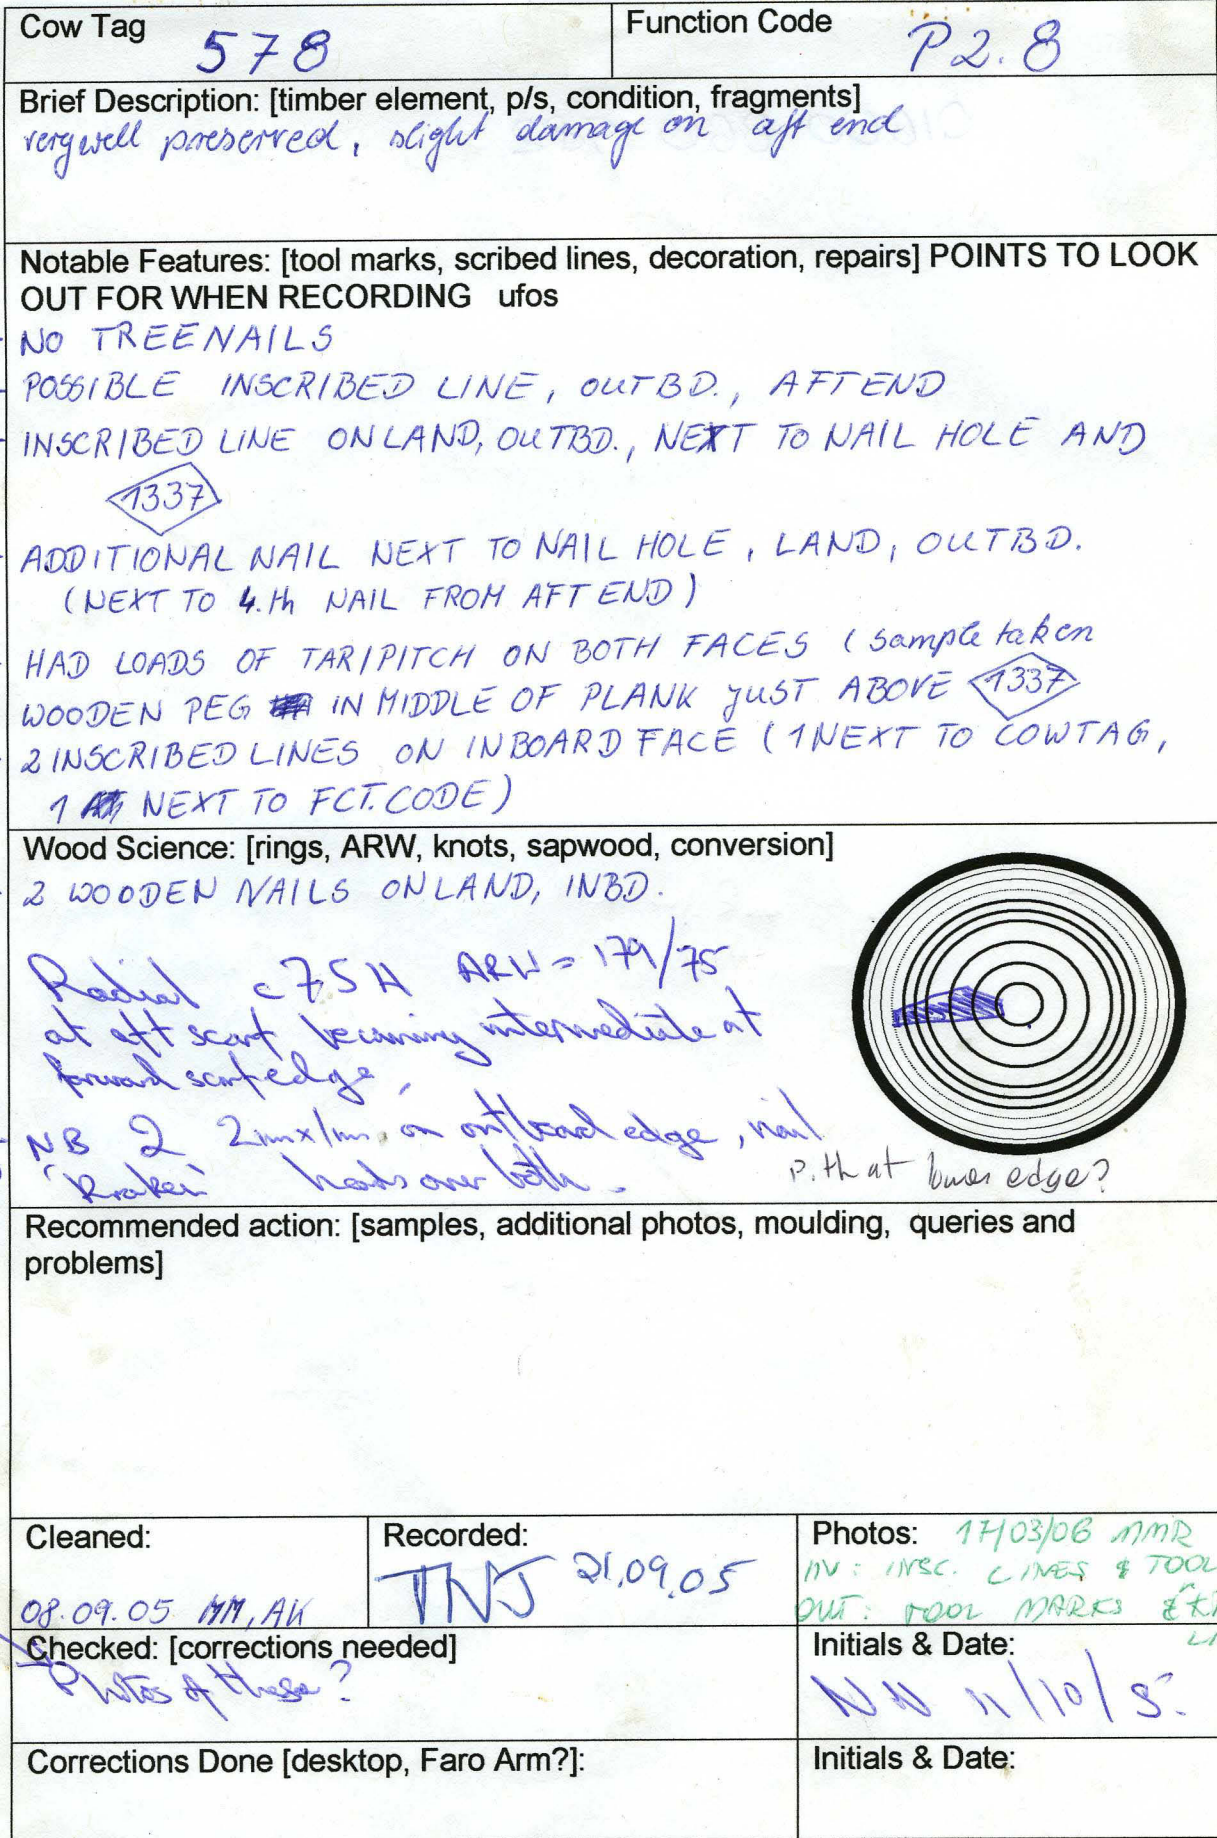 Cow Tag 578
Function Code P2.8
Brief Description: [timber element, p/s, condition, fragments]
very well preserved, slight damage on aft end
Notable Features: [tool marks, scribed lines, decoration, repairs] POINTS TO LOOK
OUT FOR WHEN RECORDING ufos
NO TREENAILS
POSSIBLE INSCRIBED LINE, OUTBD., AFT END
INSCRIBED LINE ON LAND, OUTBD., NEXT TO NAIL HOLE AND
1337
ADDITIONAL NAIL NEXT TO NAIL HOLE, LAND, OUTBD.
(NEXT TO 4.th NAIL FROM AFT END)
HAD LOADS OF TAR/PITCH ON BOTH FACES (sample taken
WOODEN PEG IN MIDDLE OF PLANK JUST ABOVE 1337
2 INSCRIBED LINES ON INBOARD FACE (1 NEXT TO COWTAG,
1 NEXT TO FCT. CODE)
Wood Science: [rings, ARW, knots, sapwood, conversion]
2 WOODEN NAILS ON LAND, INBD.
Radial c75H ARW = 179/75
at aft scarf becoming intermediate at
forward scarf edge
NB 2 2mm x 1mm on outboard edge, nail
heads over both.
Pith at lower edge?
Recommended action: [samples, additional photos, moulding, queries and
problems]
Cleaned:
08.09.05 MM, AK
Recorded:
TNJ 21.09.05
Photos: 17/03/06 NMR
IN: INSC. LINES & TOOL
OUT: TOOL MARKS &
Checked: [corrections needed]
Photos of these?
Initials & Date:
NN 11/10/5.
Corrections Done [desktop, Faro Arm?]:
Initials & Date: